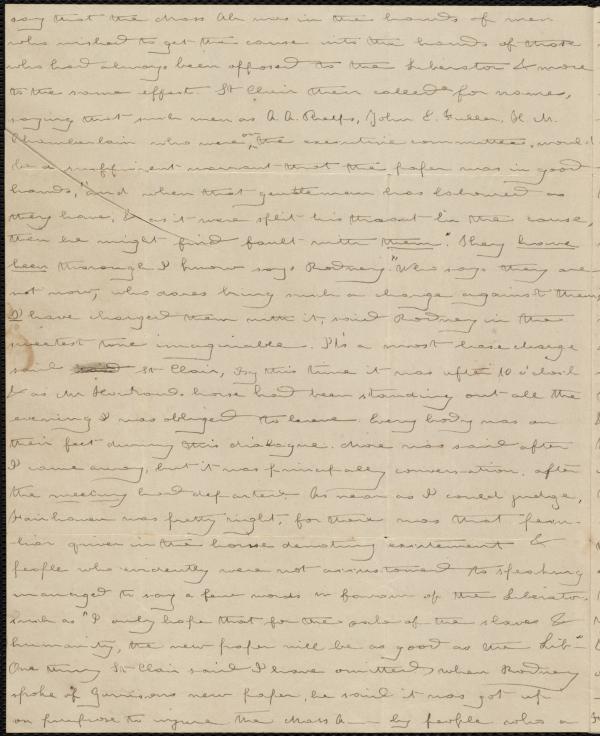 say that the Mass Ab was in the hands of men
who wished to get the cause into the hands of those
who had always been opposed to the Liberator & more
to the same effect St Clair then called for names,
saying that such men as A. A. Phelps, John E. Fuller, H. M.
Chamberlain who were on the executive committee, would
be a sufficient warrant that the paper was in good
hands, "and when that gentleman has labored as
they have, & as it were split his throat in the cause,
then he might find fault with them". They have
been thorough I know says Rodney. "Who says they are
not now, who dares bring such a charge against them
I have charged them with it, said Rodney in the
sweetest tone imaginable. It's a most base charge
said St Clair, By this time it was after 10 o'clock
& as Mr horse had been standing out all the
evening I was obliged to leave. Every body was on
their feet during this dialogue. More was said after
I came away, but it was principally conversation, after
the meeting had departed. As near as I could judge,
Fairhaven was pretty right, for there was that pecu-
liar quiver in the house denoting excitement &
people who evidently were not accustomed to speaking
managed to say a few words in favour of the Liberator
such as "I only hope that for the sake of the slaves &
humanity, the new paper will be as good as the Lib"
One thing St Clair said I have omitted, when Rodney
spoke of Garrisons new paper, he said it was got up
on purpose to injure the Mass A— by people who a